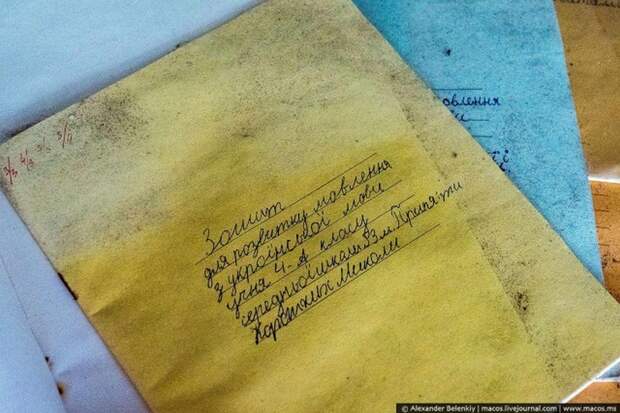 3/3 4/3 3/4
Зошит
для розвитку мовлення
з української мови
учня 4-А класу
середньої школи №3 м. Прип'яти
Миколи
овлення
© Alexander Belenkiy | macos.livejournal.com | www.macos.ms